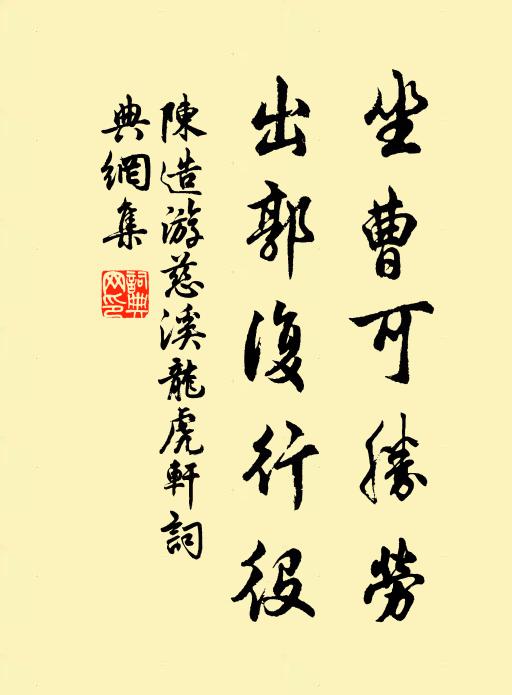 坐曹可勝勞
出郭復行役
陳造游慈溪龍虎軒詞
典網集
詞典網印